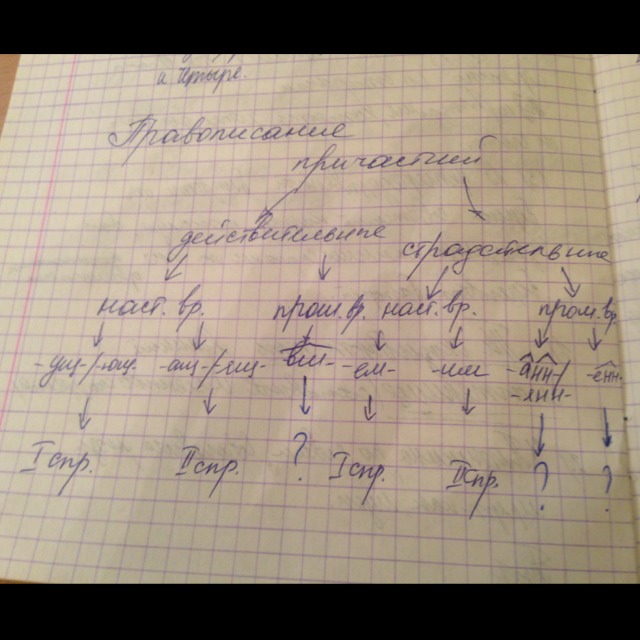 и четыре.
Правописание
причастий
действительные
страдательные
наст. вр. прош. вр. наст. вр. прош. вр.
-ущ-/-ющ- -ащ-/-ящ- -вш- -ем- -им- -анн-/ -енн-
-янн-
I спр. II спр. ? I спр. II спр. ? ?